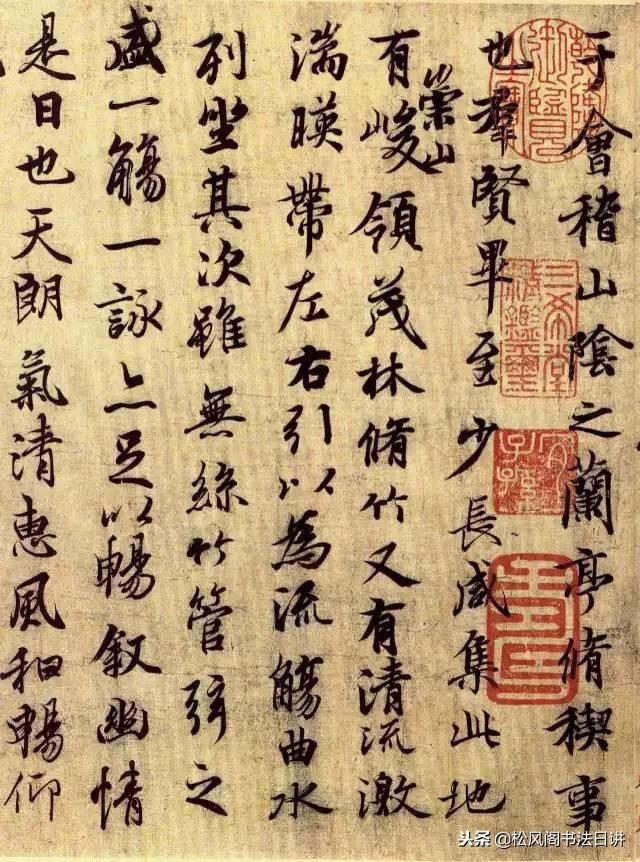 于會稽山陰之蘭亭脩稧事
也群賢畢至少長咸集此地
有崇山峻領茂林脩竹又有清流激
湍暎帶左右引以為流觴曲水
列坐其次雖無絲竹管弦之
盛一觴一詠亦足以暢敘幽情
是日也天朗氣清惠風和暢仰
三希堂精鑑璽
宜子孫
头条 @松风阁书法日讲